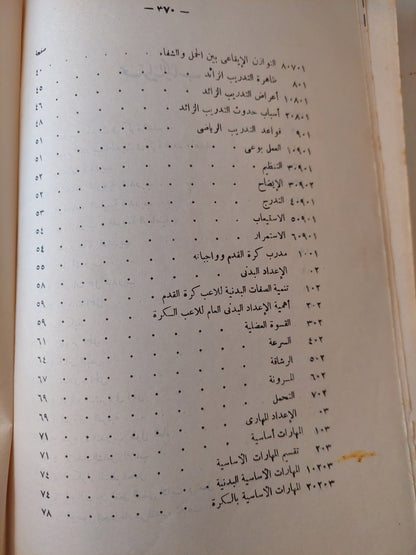 — ٣٧٠ —
صفحة
١.٧.٨ التوازن الإيقاعى بين الحمل والشفاء ٤٠
٨.١ ظاهرة التدريب الزائد ٤٥
١.٨.١ أعراض التدريب الزائد ٤٦
١.٨.٢ أسباب حدوث التدريب الزائد ٤٨
٩.١ قواعد التدريب الرياضى ٥١
١.٩.١ العمل بوعى ٥١
١.٩.٣ التنظيم ٥١
٢.٩.٣ الإيضاح ٥٢
١.٩.٤ التدرج ٥٣
١.٩.٥ الاستيعاب ٥٣
١.٩.٦ الاستمرار ٥٤
١.١٠ مدرب كرة القدم وواجباته ٥٥
٠٢ الإعداد البدنى ٥٨
١.٢ تنمية الصفات البدنية للاعب كرة القدم ٥٩
٣.٢ أهمية الإعداد البدنى العام للاعب الكرة ٥٩
٣.٢ القسوة العضلية ٦١
٤.٢ السرعة ٦٤
٥.٢ الرشاقة ٦٧
٦.٢ المرونة ٦٩
٧.٢ التحمل ٦٩
٠٣ الإعداد المهارى ٧١
١.٣ المهارات أساسية ٧١
٢.٣ تقسيم المهارات الأساسية ٧٤
١.٢.٣ المهارات الأساسية البدنية ٧٤
٢.٢.٣ المهارات الأساسية بالكرة ٧٨